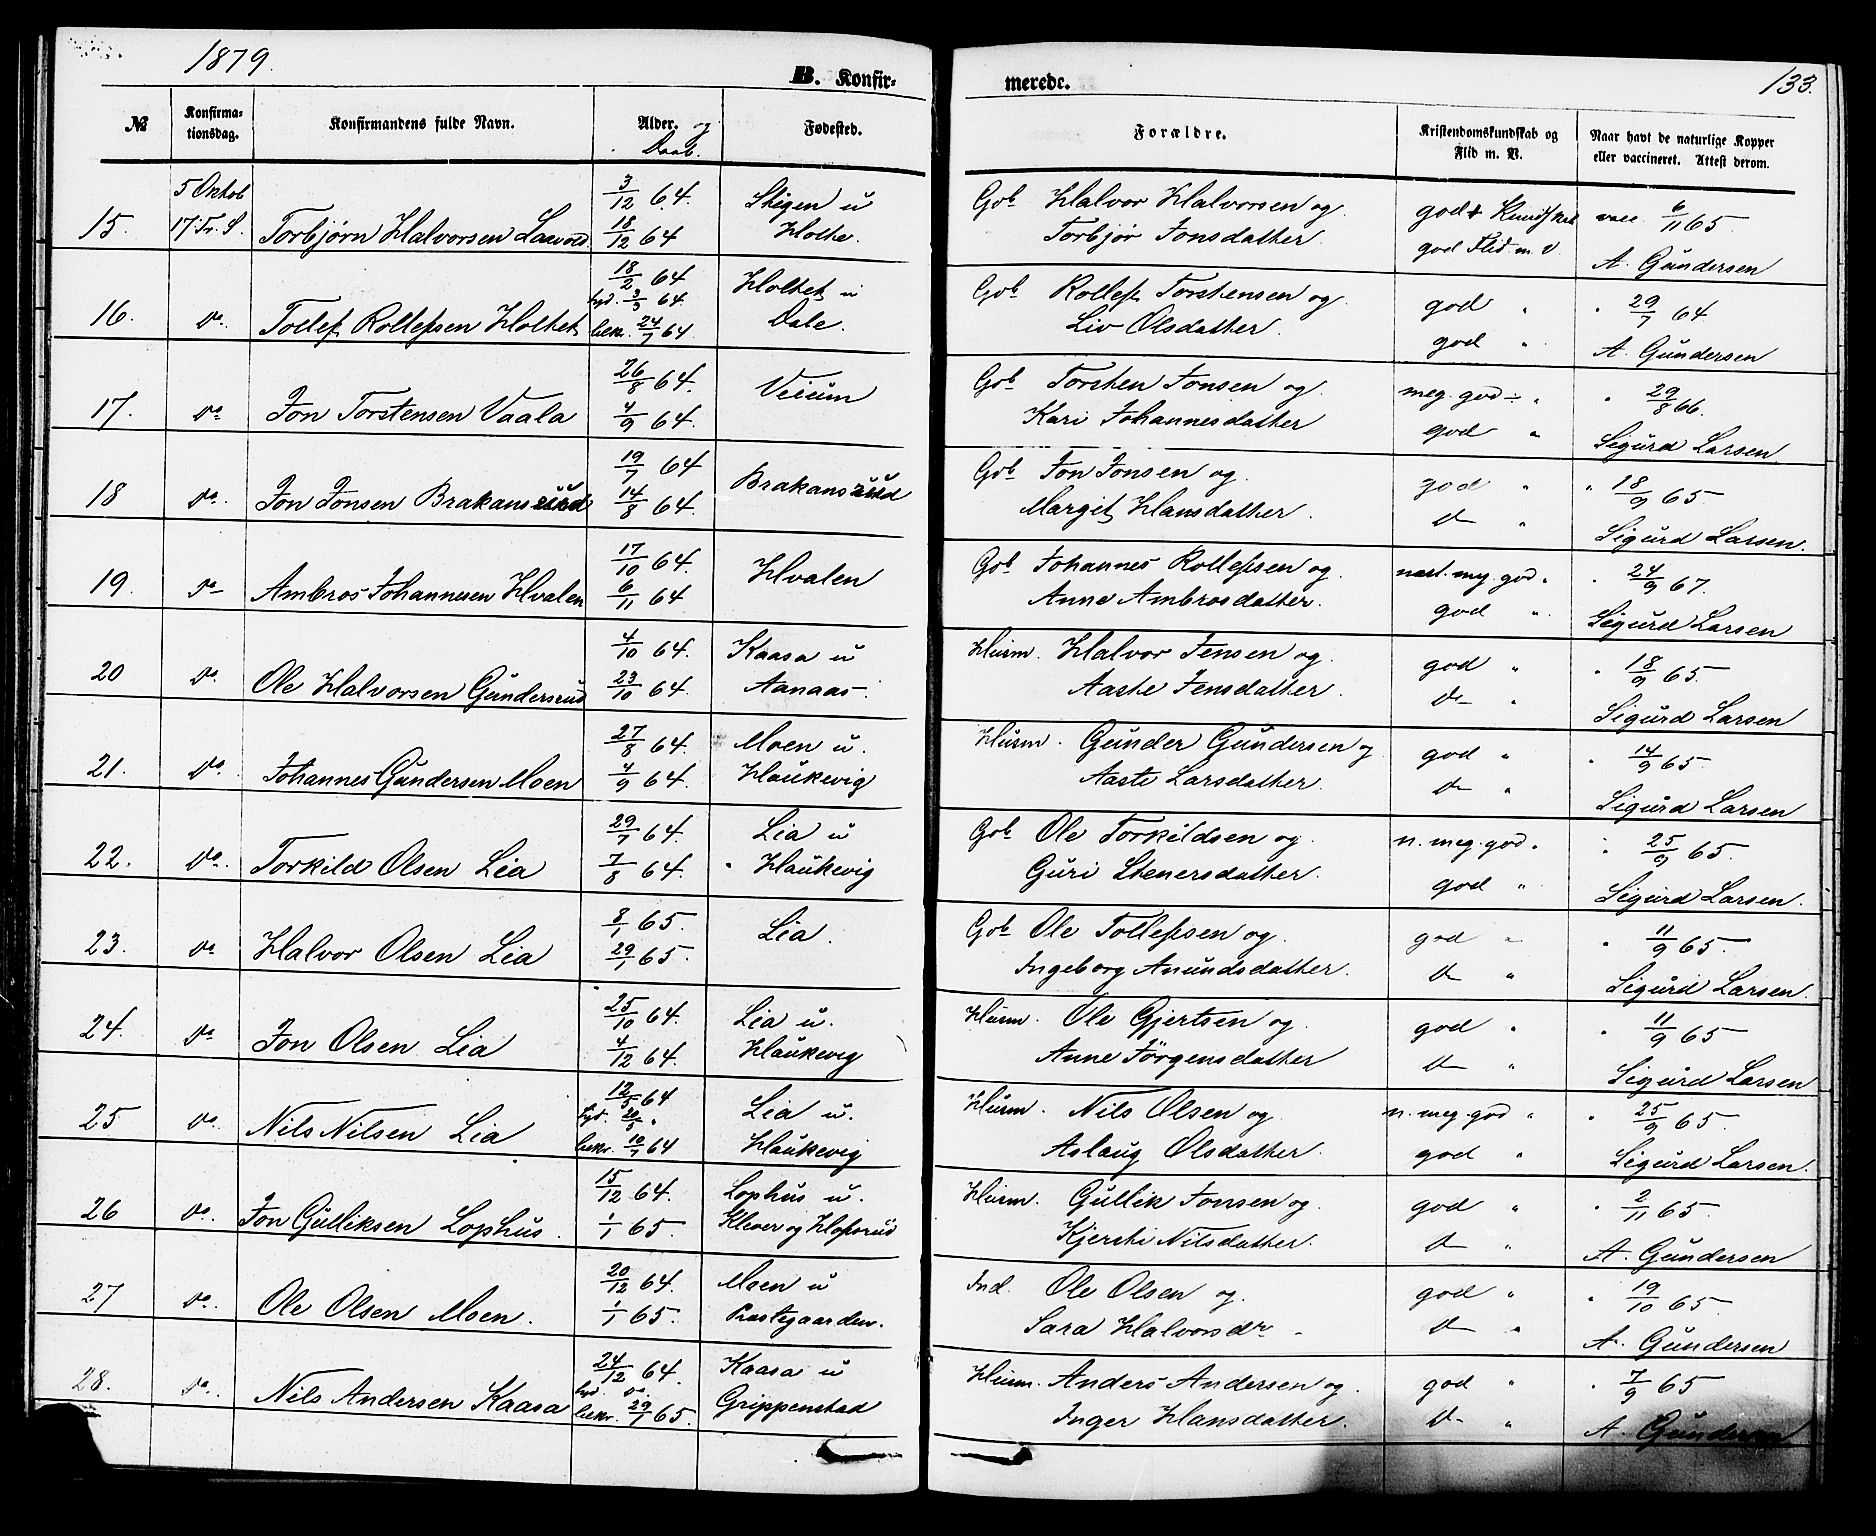 1879.
B. Konfir-
merede.
133.
№
Konfirma-
tionsdag.
Konfirmandens fulde Navn.
Alder. og
Daab.
Fødested.
Forældre.
Kristendomskundskab og
Flid m. V.
Naar havt de naturlige Kopper
eller vaccineret. Attest derom.
15.
5 Oktob
17. Tr. S.
Torbjørn Halvorsen
3/12 64.
18/12 64
Stigen u
Holte.
Gbb Halvor Halvorsen og
Torbjør Jonsdatter.
god Kundskab
god Flid m. V.
vacc. 6/11 65
A. Gundersen
16.
do.
Tollef Rollefsen Holtet
18/2 64
hjd. 3/3 64.
bekr. 24/7 64
Holtet u
Dale.
Gbb Rollef Torstensen og
Liv Olsdatter.
god "
god "
" 29/7 64
A. Gundersen
17.
do
Jon Torstensen Vaala
26/8 64.
4/9 64.
Veium
Gbb Torsten Jonsen og
Kari Johannesdatter
meg. god ÷ "
god "
" 29/8 66.
Sigurd Larsen.
18
do.
Jon Jonsen Brakansrud
19/7 64
14/8 64.
Brakansrud
Gbb Jon Jonsen og
Margit Hansdatter.
god "
do "
" 18/9 65
Sigurd Larsen.
19.
do
Ambros Johannesen Hvalen
17/10 64.
6/11 64
Hvalen
Gbb Johannes Rollefsen og
Anne Ambrosdatter.
næst. meg. god "
god "
" 24/9 67.
Sigurd Larsen
20
do.
Ole Halvorsen Gundersrud
4/10 64.
23/10 64.
Kaasa u
Aanaas.
Husm. Halvor Jensen og
Aaste Jensdatter.
god "
do "
" 18/9 65.
Sigurd Larsen
21.
do.
Johannes Gundersen Moen
27/8 64.
4/9 64.
Moen u.
Haukevig
Husm. Gunder Gundersen og
Aaste Larsdatter.
god "
do "
" 14/9 65.
Sigurd Larsen
22.
do.
Torkild Olsen Lia
29/7 64.
7/8 64.
Lia u
Haukevig
Gbb Ole Torkildsen og
Guri Stenersdatter.
n. meg. god "
god "
" 25/9 65.
Sigurd Larsen.
23.
do
Halvor Olsen Lia
8/1 65.
29/1 65.
Lia.
Gbb Ole Tollefsen og
Ingeborg Anundsdatter.
god "
do "
" 11/9 65.
Sigurd Larsen.
24.
do
Jon Olsen Lia
25/10 64.
4/12 64.
Lia u.
Haukevig
Husm. Ole Gjertsen og
Anne Jörgensdatter
god "
do "
" 11/9 65
Sigurd Larsen
25
do.
Nils Nilsen Lia
12/5 64
hjd. 20/5 "
bekr. 10/7 64
Lia u.
Haukevig
Husm. Nils Olsen og
Aslaug Olsdatter.
n. meg. god "
god "
" 25/9 65.
Sigurd Larsen.
26
do.
Jon Gulliksen Lophus.
15/12 64.
1/1 65.
Lophus u.
Klever og
Husm. Gullik Jonsen og
Kjersti Nilsdatter.
god "
do "
" 2/11 65.
A. Gundersen
27
do.
Ole Olsen Moen.
20/12 64.
1/1 65.
Moen u
Præstegaarden.
Ind. Ole Olsen og
Sara Halvorsdr.
god "
do "
" 19/10 65.
A. Gundersen
28.
do.
Nils Andersen Kaasa
24/12 64.
hjd. do.
bekr. 29/1 65.
Kaasa u
Grippenstad
Husm. Anders Andersen og
Inger Hansdatter.
god "
do "
" 7/9 65
A. Gundersen